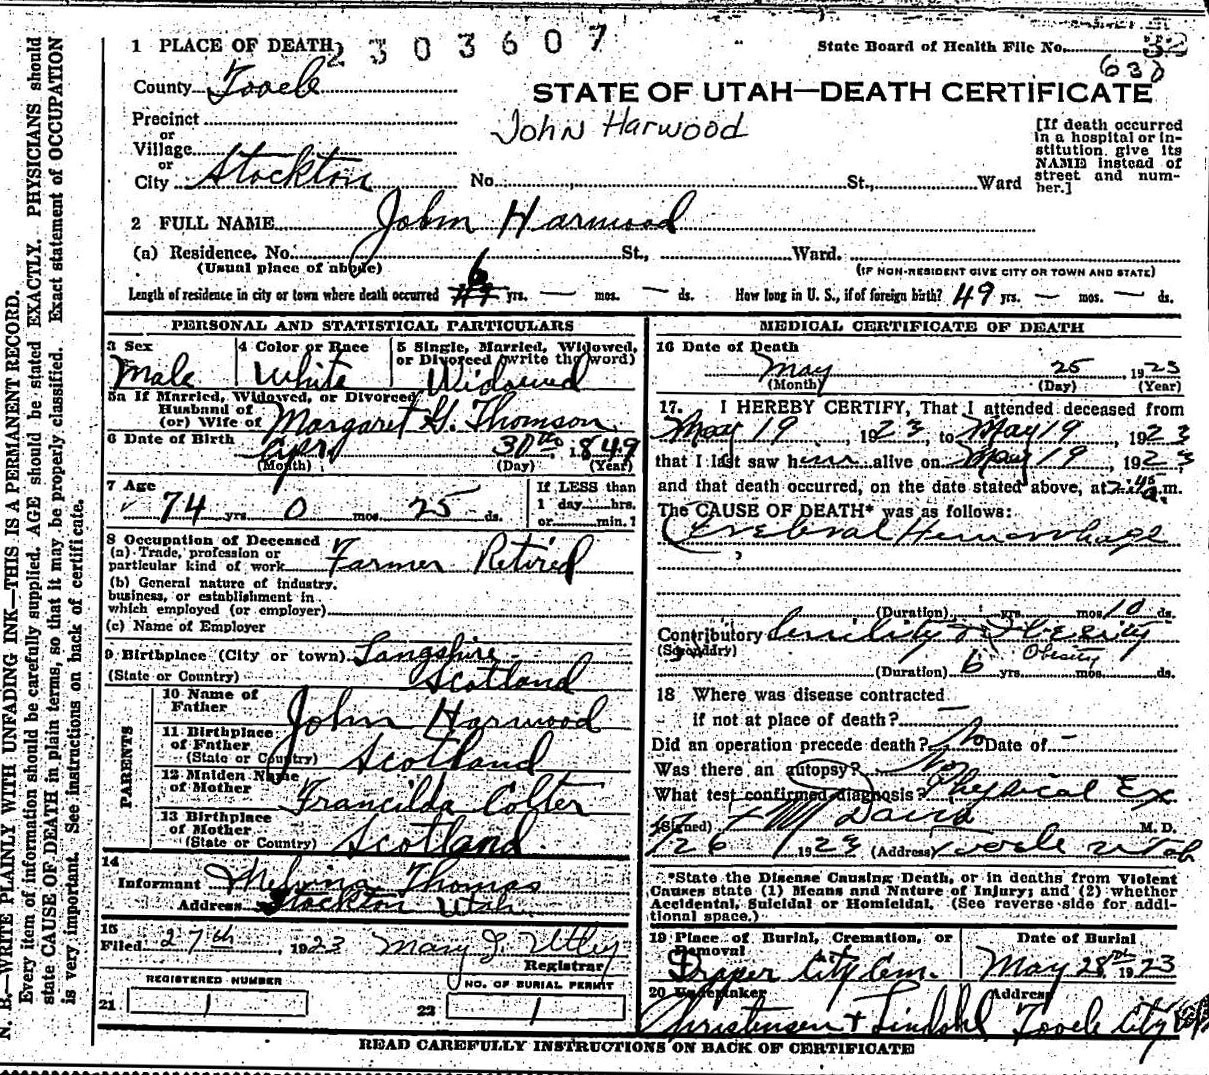 N. B.—WRITE PLAINLY WITH UNFADING INK—THIS IS A PERMANENT RECORD.
Every item of information should be carefully supplied. AGE should be stated EXACTLY. PHYSICIANS should
state CAUSE OF DEATH in plain terms, so that it may be properly classified. Exact statement of OCCUPATION
is very important. See instructions on back of certificate.
2303607
1 PLACE OF DEATH
State Board of Health File No. 32
630
County Tooele
STATE OF UTAH—DEATH CERTIFICATE
John Harwood
Precinct
or
Village
or
City Stockton No. St., Ward
[If death occurred
in a hospital or in-
stitution, give its
NAME instead of
street and num-
ber.]
2 FULL NAME John Harwood
(a) Residence. No. St., Ward.
(Usual place of abode) (IF NON-RESIDENT GIVE CITY OR TOWN AND STATE)
6
Length of residence in city or town where death occurred 49 yrs. — mos. — ds. How long in U. S., if of foreign birth? 49 yrs. — mos. — ds.
PERSONAL AND STATISTICAL PARTICULARS
3 Sex
Male
4 Color or Race
White
5 Single, Married, Widowed,
or Divorced (write the word)
Widowed
5a If Married, Widowed, or Divorced
Husband of
(or) Wife of Margaret G. Thomson
6 Date of Birth Apr. 30th 1849
(Month) (Day) (Year)
7 Age
74 yrs. 0 mos. 25 ds.
If LESS than
1 day hrs.
or min.?
8 Occupation of Deceased
(a) Trade, profession or
particular kind of work Farmer Retired
(b) General nature of industry.
business, or establishment in
which employed (or employer)
(c) Name of Employer
9 Birthplace (City or town) Langshire
(State or Country) Scotland
PARENTS
10 Name of
Father John Harwood
11 Birthplace
of Father
(State or Country) Scotland
12 Maiden Name
of Mother Francilda Colter
13 Birthplace
of Mother
(State or Country) Scotland
14
Informant Melvina Thomas
Address Stockton Utah.
15
Filed 27th, 1923 Mary J. Utley
Registrar
REGISTERED NUMBER
21 1
NO. OF BURIAL PERMIT
22 1
MEDICAL CERTIFICATE OF DEATH
16 Date of Death
May 25 1923
(Month) (Day) (Year)
17. I HEREBY CERTIFY, That I attended deceased from
May 19, 1923, to May 19, 1923
that I last saw him alive on May 19, 1923
and that death occurred, on the date stated above, at a. m.
The CAUSE OF DEATH* was as follows:
Cerebral Hemorrhage
(Duration) yrs. mos. 10 ds.
Contributory Senility & Obesity
(Secondary) Obesity
(Duration) 6 yrs. mos. ds.
18 Where was disease contracted
if not at place of death? —
Did an operation precede death? No Date of —
Was there an autopsy? No
What test confirmed diagnosis? Physical Ex
(Signed) F M Davis M. D.
/26 1923 (Address) Tooele Utah
*State the Disease Causing Death, or in deaths from Violent
Causes state (1) Means and Nature of Injury; and (2) whether
Accidental, Suicidal or Homicidal. (See reverse side for addi-
tional space.)
19 Place of Burial, Cremation, or
Removal
Draper City Cem.
Date of Burial
May 28th 1923
20 Undertaker
Christensen & Lindahl
Address
Tooele City
READ CAREFULLY INSTRUCTIONS ON BACK OF CERTIFICATE